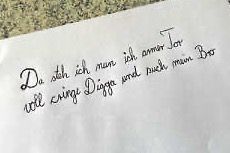 Da steh ich nun ich armer Tor
voll cringe Digga und such mein Bro